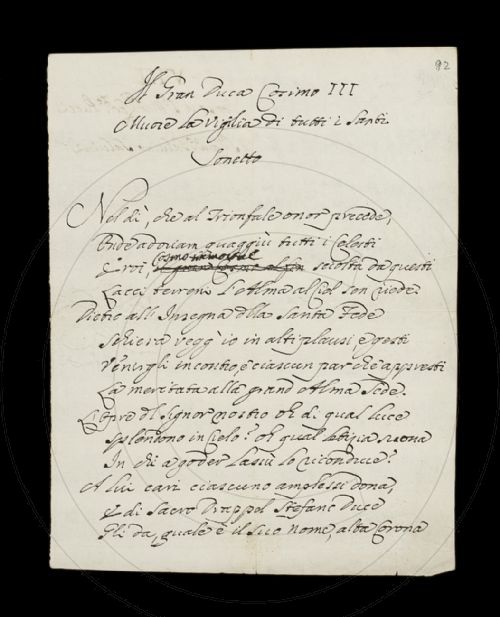 92
Il Gran Duca Cosimo III
Muore la Vigilia di tutti i Santi
Sonetto
Nel dì, che al Trionfale onor precede,
Onde adoriam quaggiù tutti i Celesti
Eroi, Cosmo immortal sciolta da questi
Lacci terreni L'Alma al Ciel sen riede
Dietro all' Insegna della Santa Fede
Schiera vegg'io in alti plausi, e gesti
Venirgli incontro, e ciascun par che appresti
La meritata alla grand'Alma Sede.
L'Opre del Signor nostro oh di qual luce
Splendono in Cielo! oh qual letizia suona
In dì a goder lassù lo riconduce!
A lui cari ciascuno amplessi dona,
E di Sacro Drappel Stefano Duce
Gli dà, quale è il suo nome, alta Corona